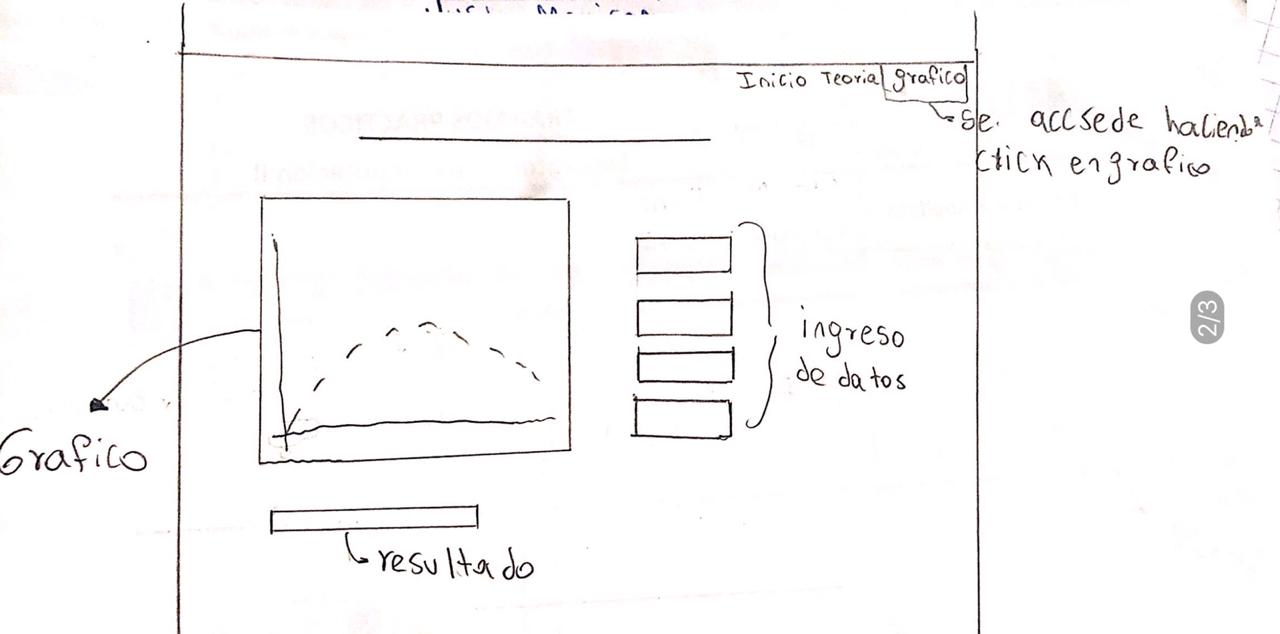 Inicio Teoria grafico
Se. accsede haciendo
click en grafico
ingreso
de datos
Grafico
resultado
2/3